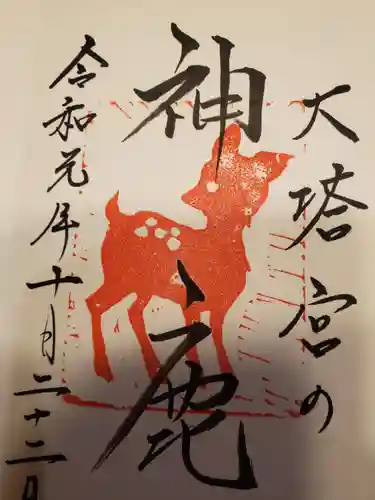 大塔宮の
神鹿
令和元年十月二十二日